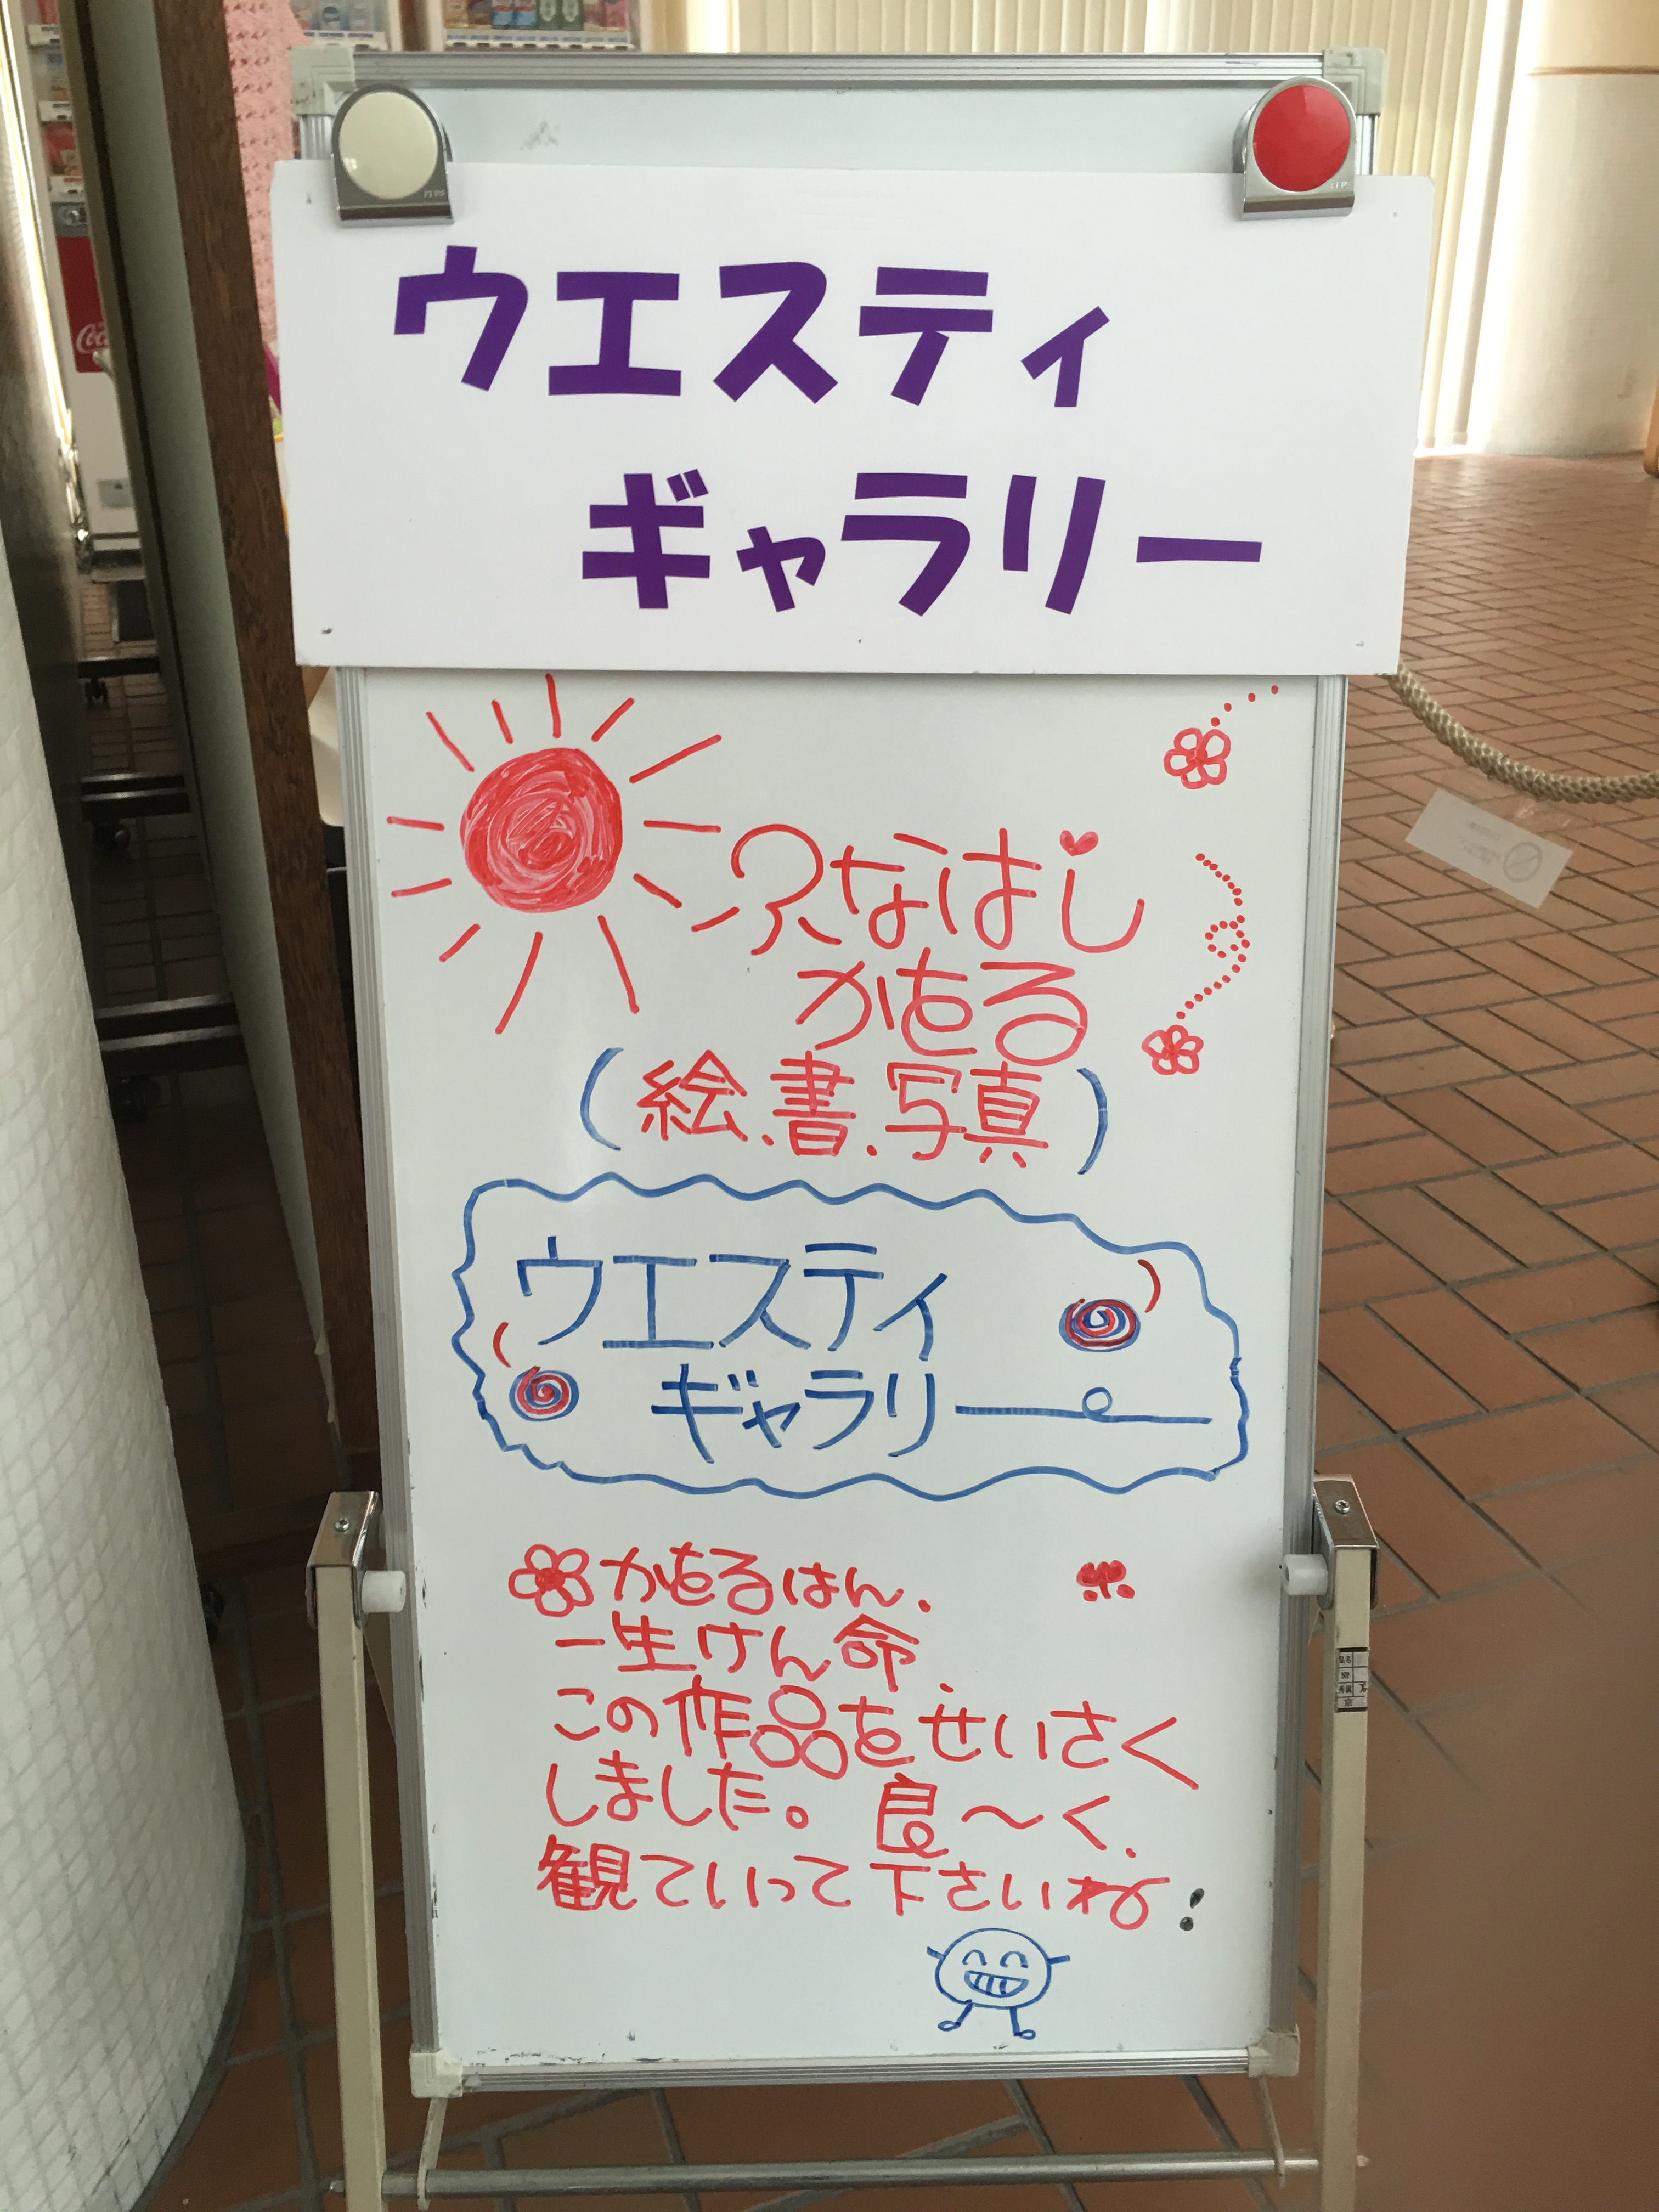 ウエスティ
ギャラリー
ふなはし
かをる
(絵.書.写真)
ウエスティ
ギャラリー
かをるはん.
一生けん命.
この作品をせいさく
しました。良〜く.
観ていって下さいね!